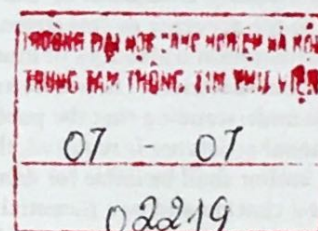 TRƯỜNG ĐẠI HỌC CÔNG NGHIỆP HÀ NỘI
TRUNG TÂM THÔNG TIN THƯ VIỆN
07 - 07
02219